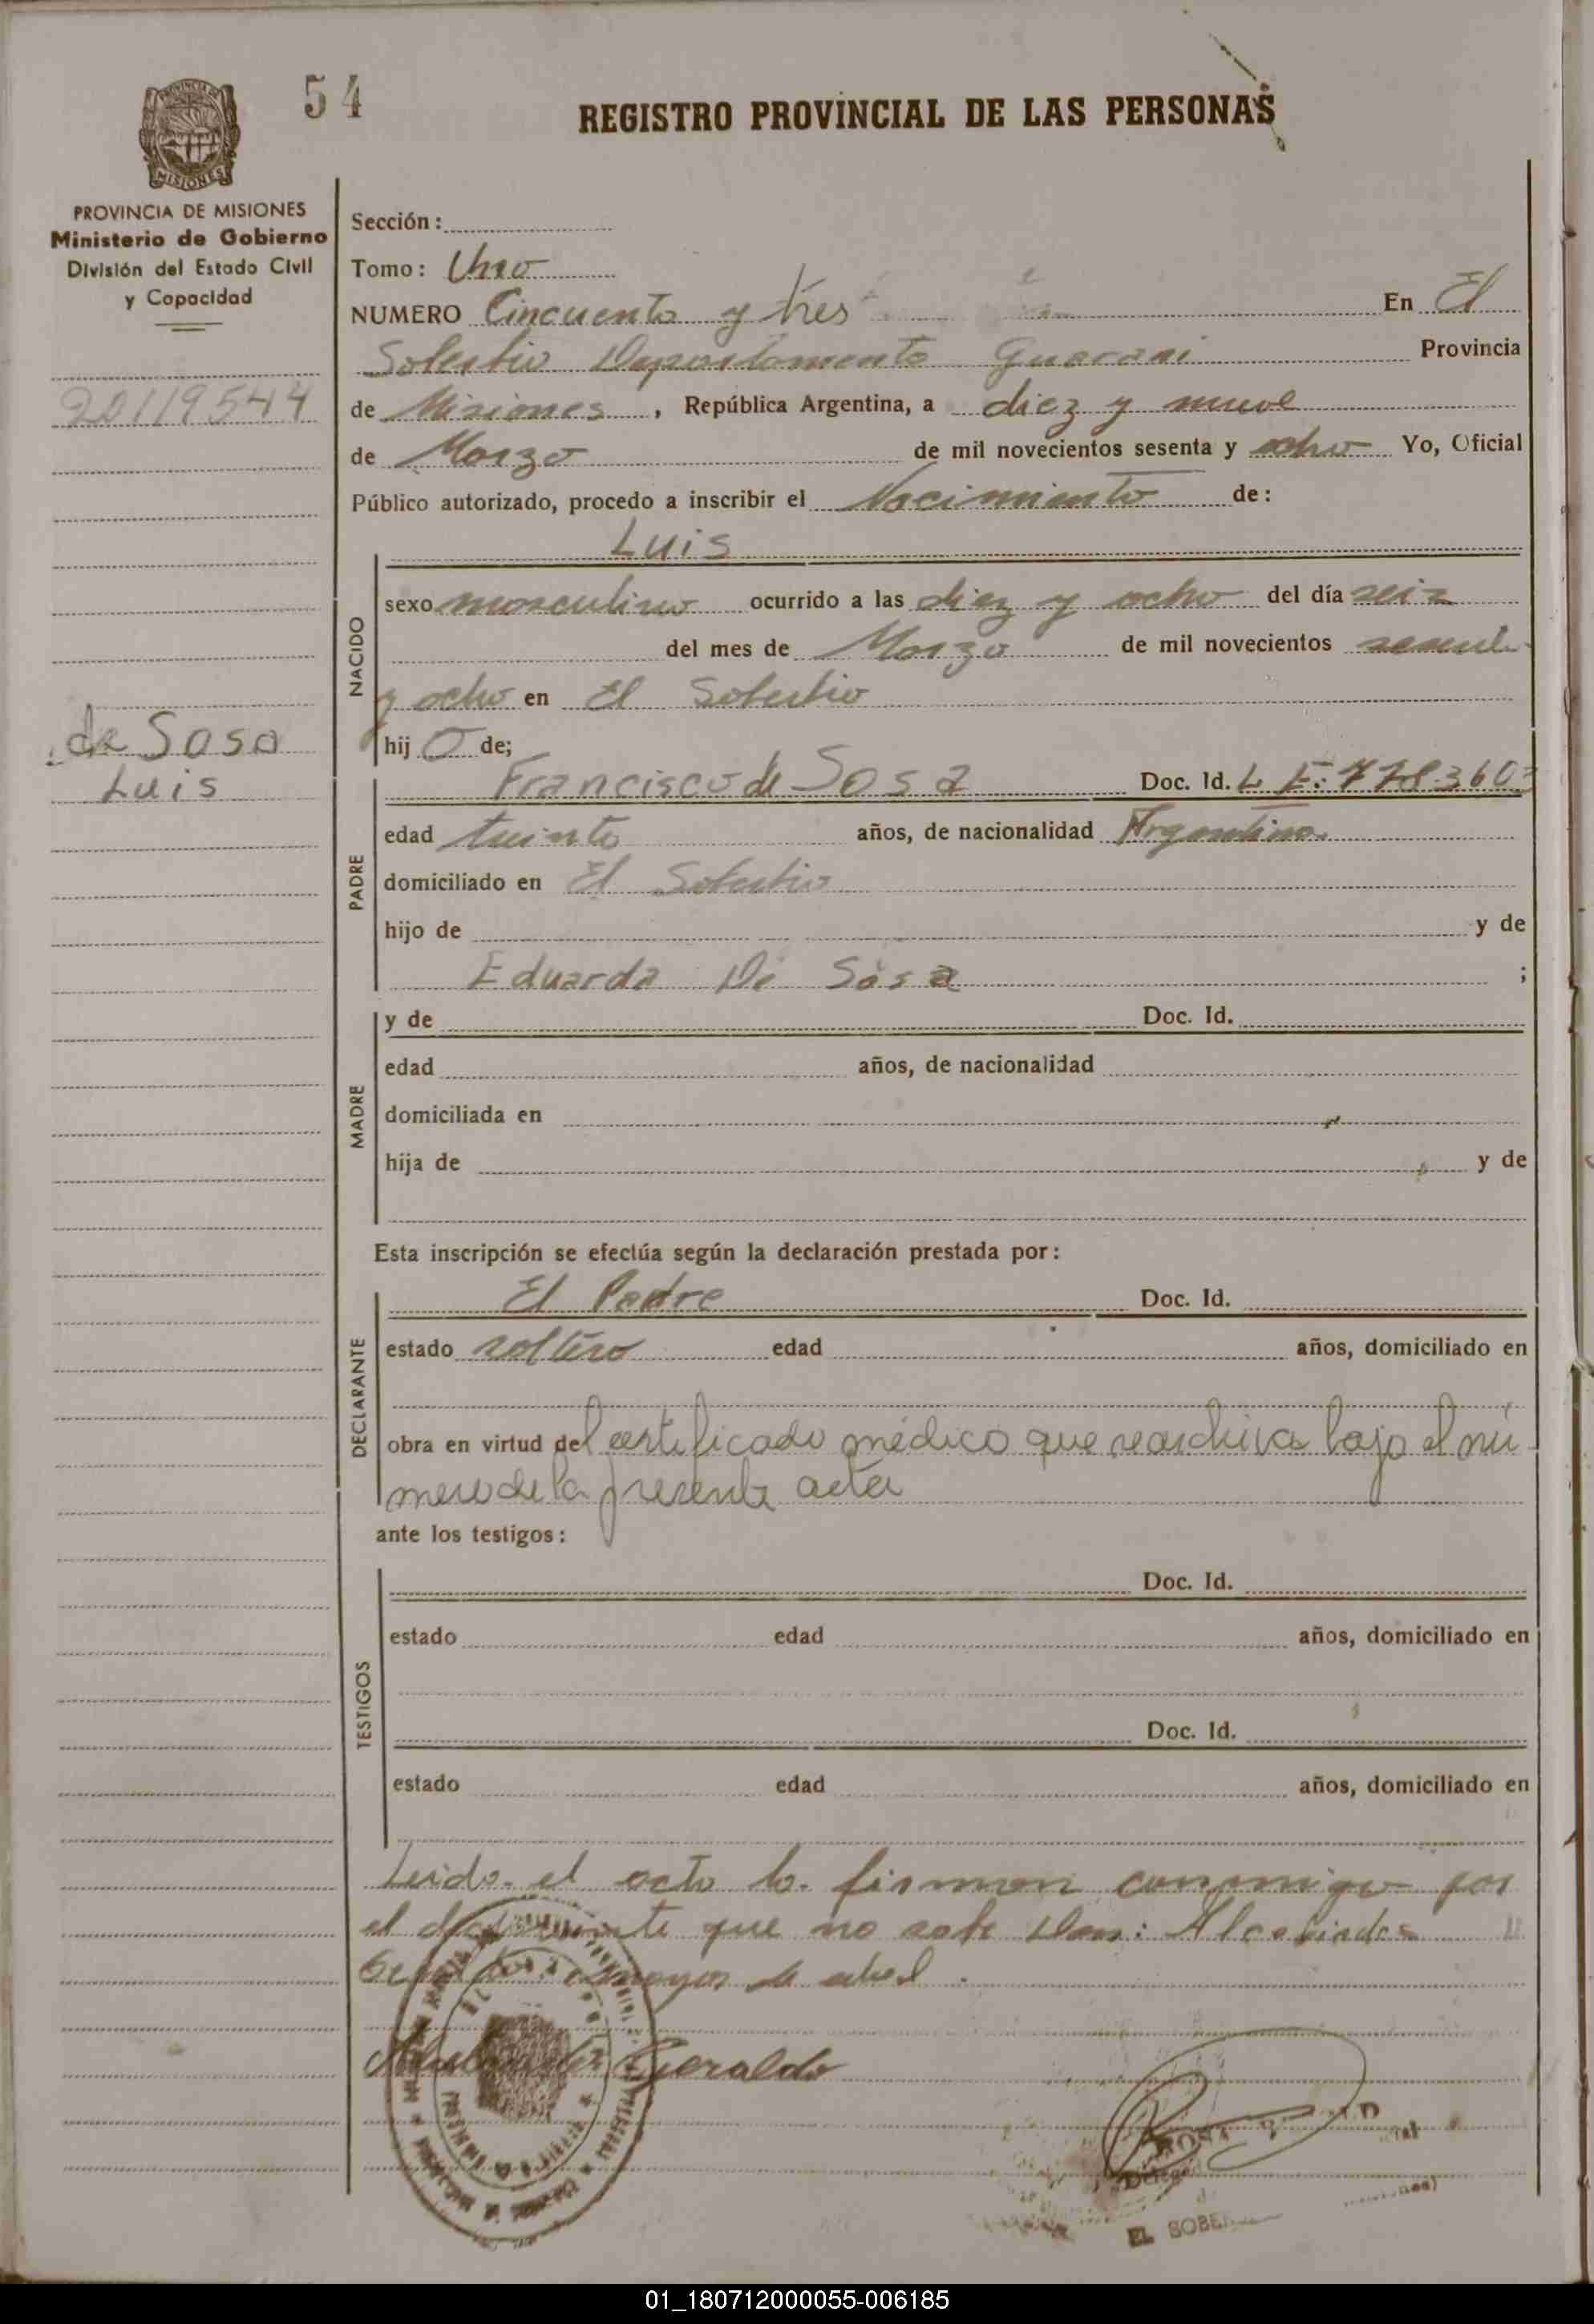 54
REGISTRO PROVINCIAL DE LAS PERSONAS
MISIONES
PROVINCIA DE MISIONES
Ministerio de Gobierno
División del Estado Civil
y Capacidad
20119544
de Sosa
Luis
Sección:
Tomo: Uno
NUMERO Cincuenta y tres En El
Soberbio Departamento Guarani Provincia
de Misiones, República Argentina, a diez y nueve
de Marzo de mil novecientos sesenta y ocho Yo, Oficial
Público autorizado, procedo a inscribir el Nacimiento de:
NACIDO
Luis
sexo masculino ocurrido a las diez y ocho del día seis
del mes de Marzo de mil novecientos
y ocho en El Soberbio
hijo de;
PADRE
Francisco de Sosa Doc. Id. L E:
edad treinta años, de nacionalidad Argentino.
domiciliado en El Soberbio
hijo de y de
Eduarda De Sosa ;
MADRE
y de Doc. Id.
edad años, de nacionalidad
domiciliada en
hija de y de
Esta inscripción se efectúa según la declaración prestada por:
DECLARANTE
El Padre Doc. Id.
estado soltero edad años, domiciliado en
obra en virtud del certificado médico que se archiva bajo el nú
mero de la presente acta
ante los testigos:
TESTIGOS
Doc. Id.
estado edad años, domiciliado en
Doc. Id.
estado edad años, domiciliado en
Leido el acto lo firman conmigo por
el declarante que no sabe Don: Alcebiades
mayor de edad.
Geraldo
EL SOBE
01_180712000055-006185